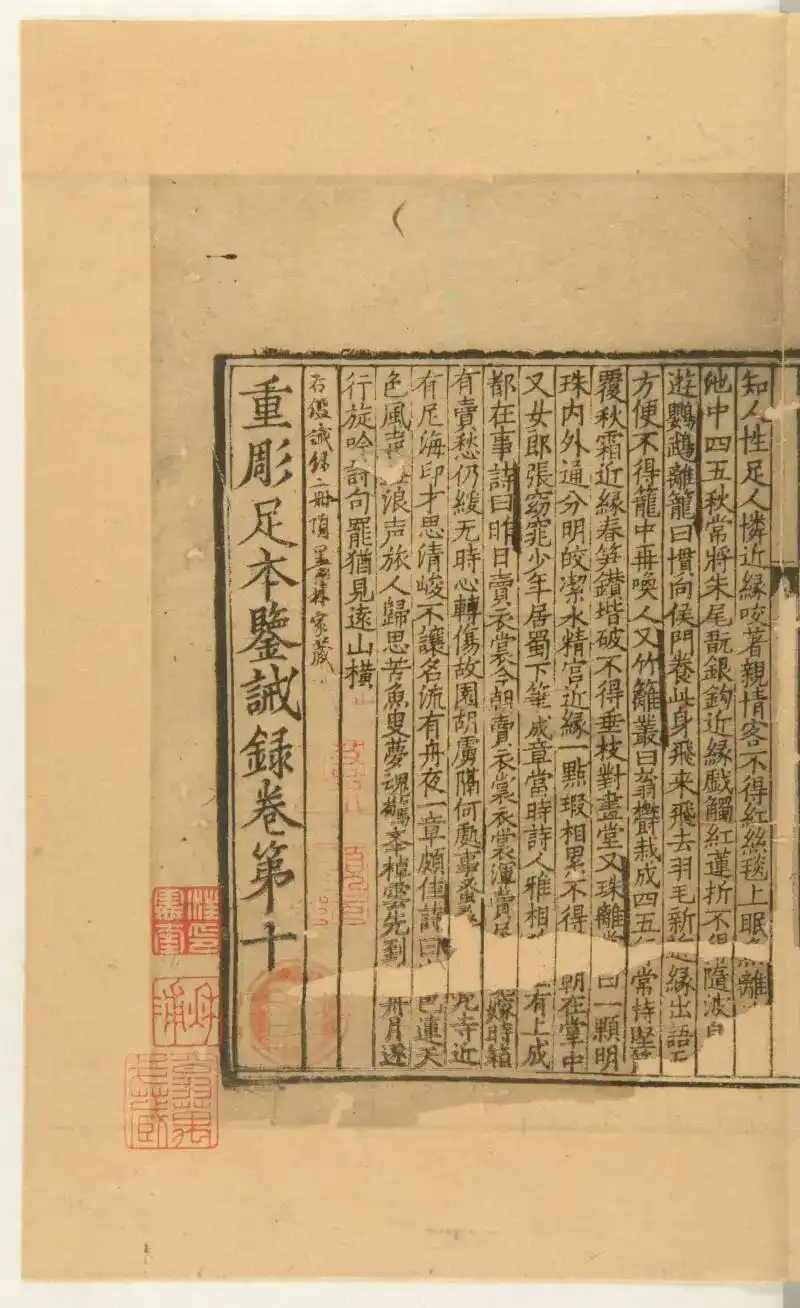 知人性足人憐近縁咬著親情客不得紅絲毯上眠 離
池中四五秋常將朱尾翫銀鈎近縁戯觸紅蓮折不得隨波
遊鸚鵡離籠曰慣向侯門養此身飛来飛去羽毛新 縁出語
方便不得籠中再喚人又竹離叢曰蓊欝栽成四五行常持堅
覆秋霜近縁春笋鑚堦破不得垂枝對畫堂又珠離掌曰一顆明
珠内外通分明皎潔水精宮近縁一點瑕相累不得朝在掌中
又女郎張窈窕少年居蜀下筆成章當時詩人雅相 有上成
都在事詩曰昨日賣衣裳今朝賣衣裳衣裳渾賣 嫁時箱
有賣愁仍緩无時心轉傷故園胡虜隔何處事蚕 尼寺近
有尼海印才思清峻不讓名流有舟夜一章頗佳詩曰 色連天
色風声 浪声旅人歸思苦魚叟夢魂驚峯棹雲先到 舟月遂
行旋吟詩句罷猶見遠山横
右鑑誡録二册項墨林家藏
重彫足本鑒誡録卷第十